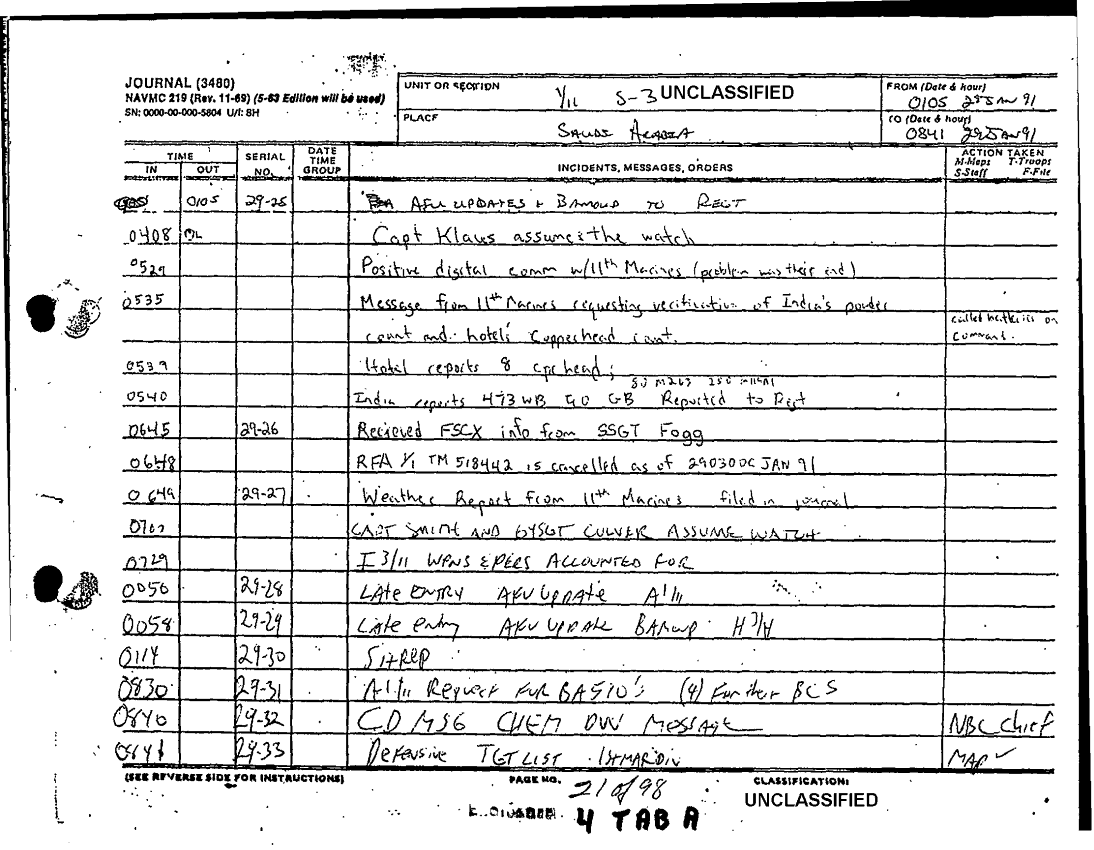 JOURNAL (3480)
NAVMC 219 (Rev. 11-69) (5-63 Edition will be used)
SN: 0000-00-000-5804 U/I: SH
UNIT OR SECTION
1/11 S-3 UNCLASSIFIED
PLACE
SAUDI ARABIA
FROM (Date & hour)
0105 29 JAN 91
TO (Date & hour)
0841 29 JAN 91
TIME
IN OUT
SERIAL NO.
DATE TIME GROUP
INCIDENTS, MESSAGES, ORDERS
ACTION TAKEN
M-Maps T-Troops
S-Staff F-File
0105 29-25 AFU UPDATES + TO REGT
0408 Capt Klaus assumes the watch
0529 Positive digital comm w/11th Marines (problem was their end)
0535 Message from 11th Marines requesting verification of India's powder
count and hotel's Copperhead count.
called batteries on
command.
0539 Hotel reports 8 cprhead;
0540 India reports 473 WB GB Reported to Regt
0645 29-26 Recieved FSCX info from SSGT Fogg
0648 RFA 1/1 TM 518442 is cancelled as of 290300C JAN 91
0649 29-27 Weather Report from 11th Marines filed in journal
CAPT SMITH AND GYSGT CULVER ASSUME WATCH
0729 I 3/11 WPNS & PERS ACCOUNTED FOR
0050 29-28 LATE ENTRY AFU UPDATE A 1/11
0058 29-29 Late entry AFU UPDATE H 3/11
0114 29-30 SITREP
0830 29-31 A 1/11 Request FOR (4) For their BCS
0840 29-32 MSG CHEM MESSAGE NBC Chief
0841 29-33 Defensive TGT LIST 1STMARDIV MAP ✓
(SEE REVERSE SIDE FOR INSTRUCTIONS)
PAGE NO.
21 of 98
CLASSIFICATION:
UNCLASSIFIED
4 TAB A